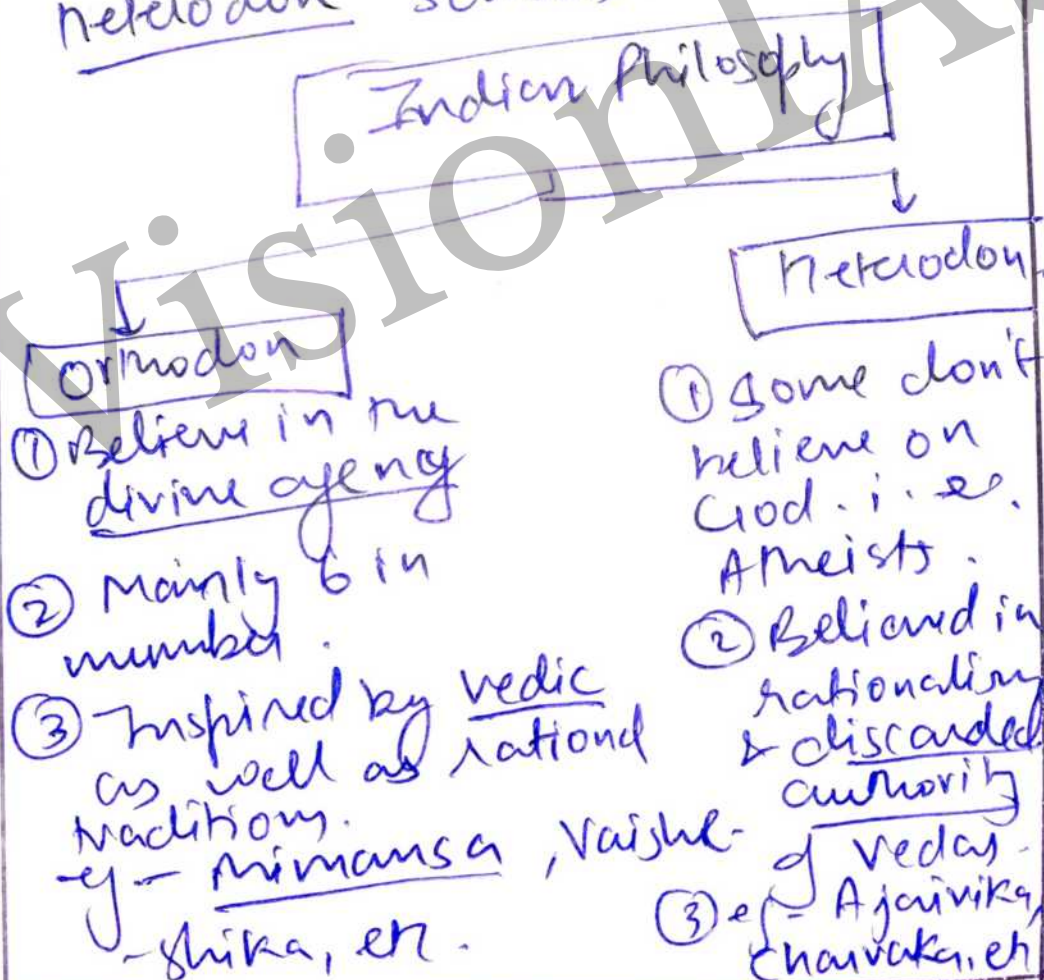 heterodox
Indian Philosophy
Orthodox
① Believe in the
divine agency
② Mainly 6 in
number.
③ Inspired by vedic
as well as rational
traditions.
eg - Mimansa, Vaishe-
-shika, etc.
Heterodox
① Some don't
believe on
God. i.e.
Atheists.
② Believed in
rationalism
& discarded
authority
of vedas.
③ eg - Ajaivika,
charvaka, etc
VisionIA